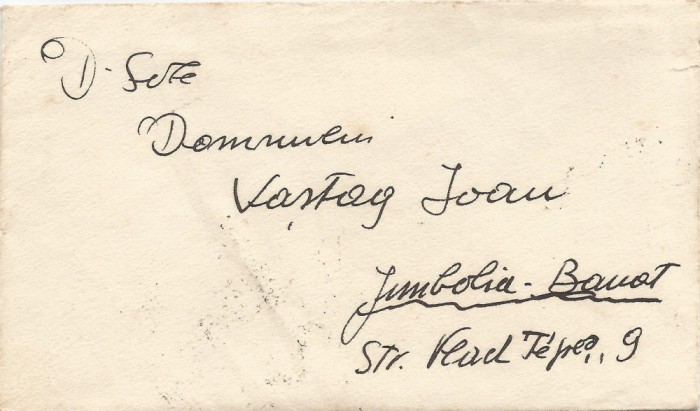 D-Sale
Domnului
Vaștag Ioan
Jimbolia - Banat
Str. Vlad Țepeș, 9